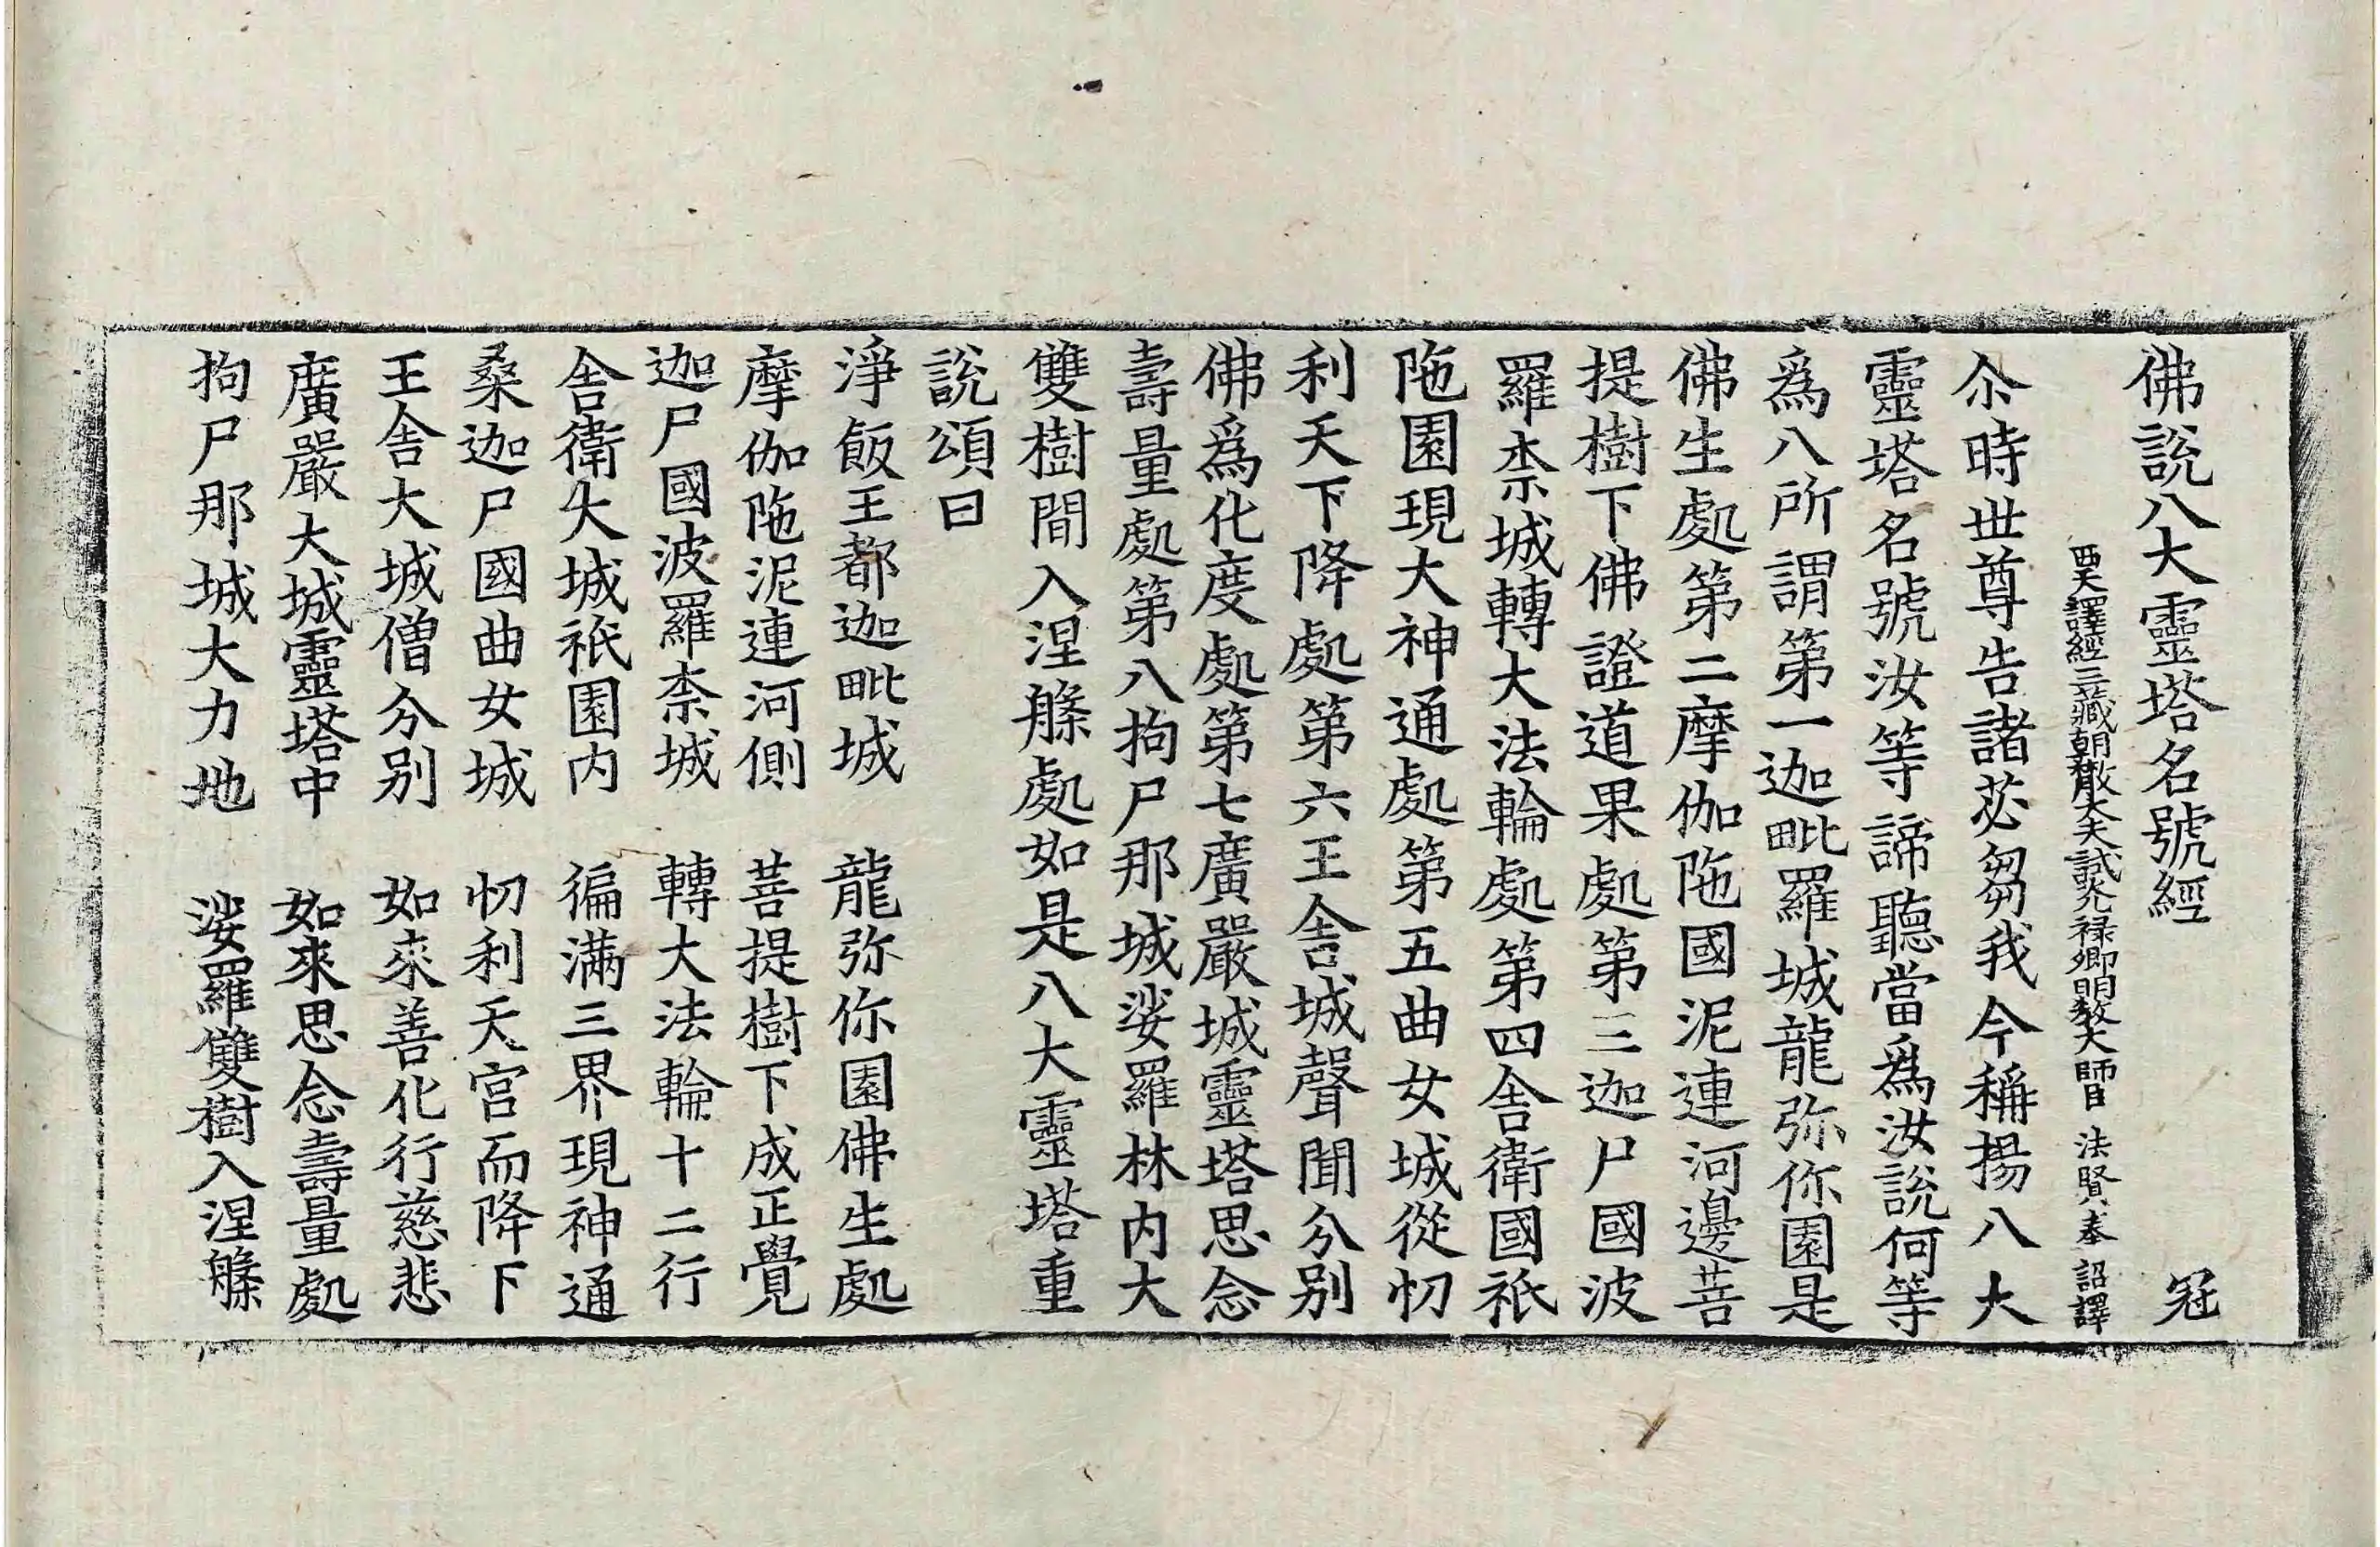 佛說八大靈塔名號經 冠
西天譯經三藏朝散大夫試光祿卿明教大師臣法賢奉 詔譯
尒時世尊告諸苾芻我今稱揚八大
靈塔名號汝等諦聽當爲汝說何等
爲八所謂第一迦毗羅城龍弥你園是
佛生處第二摩伽陁國泥連河邊菩
提樹下佛證道果處第三迦尸國波
羅柰城轉大法輪處第四舍衛國祇
陁園現大神通處第五曲女城從忉
利天下降處第六王舍城聲聞分別
佛爲化度處第七廣嚴城靈塔思念
壽量處第八拘尸那城娑羅林內大
雙樹間入涅槃處如是八大靈塔重
說頌曰
淨飯王都迦毗城 龍弥你園佛生處
摩伽陁泥連河側 菩提樹下成正覺
迦尸國波羅柰城 轉大法輪十二行
舍衛大城祇園內 徧滿三界現神通
桑迦尸國曲女城 忉利天宮而降下
王舍大城僧分別 如來善化行慈悲
廣嚴大城靈塔中 如來思念壽量處
拘尸那城大力地 娑羅雙樹入涅槃